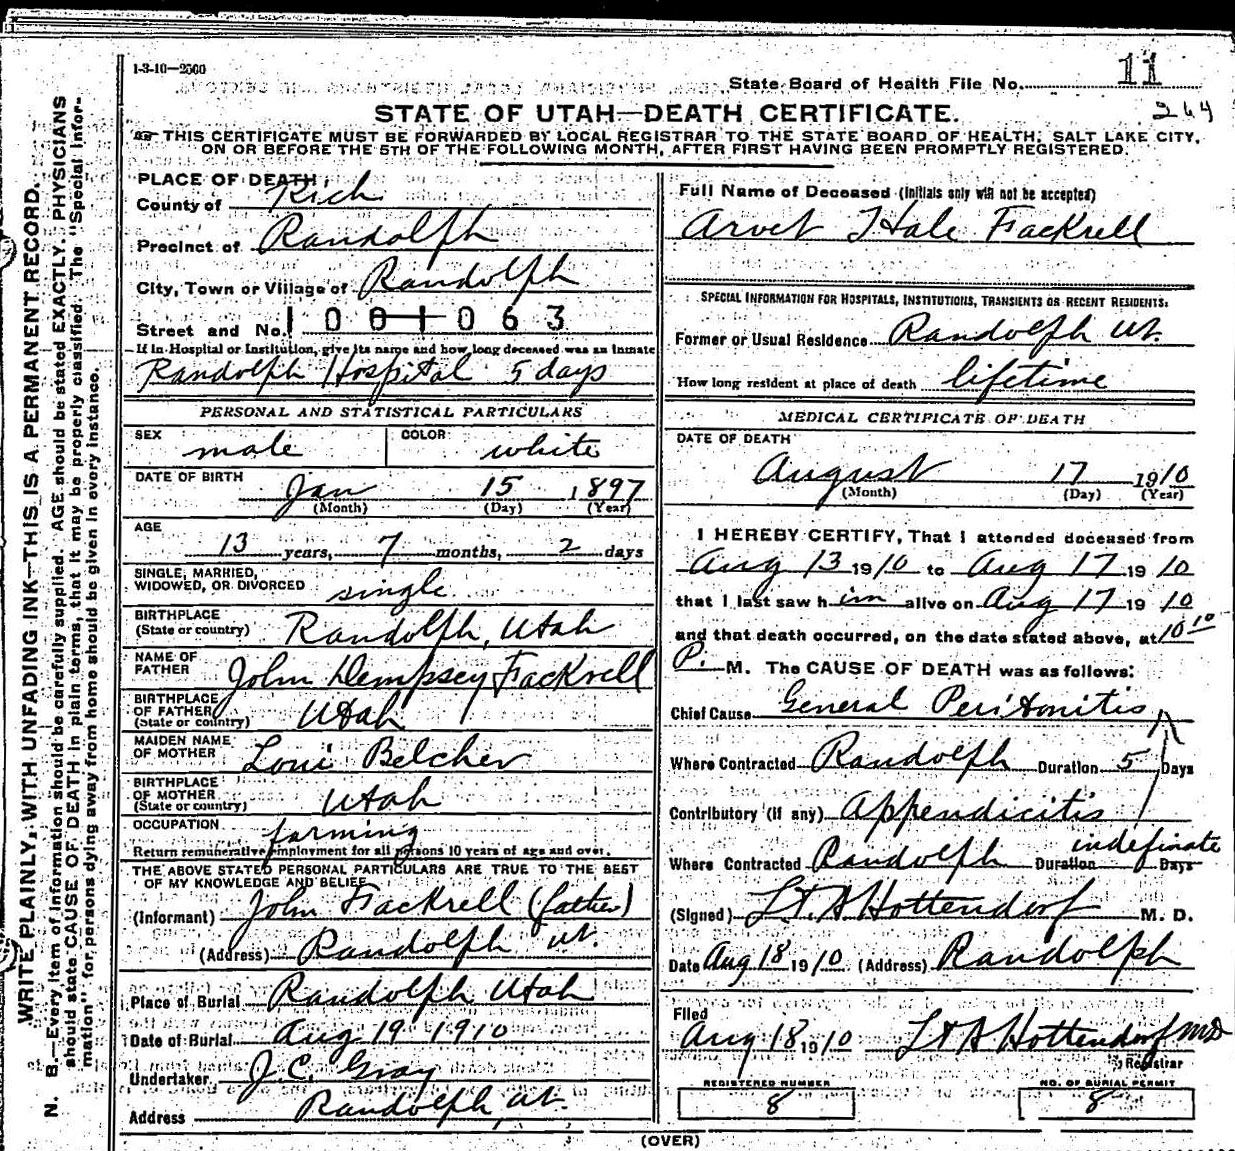 1-3-10—2500
State Board of Health File No. 11
264
STATE OF UTAH—DEATH CERTIFICATE.
THIS CERTIFICATE MUST BE FORWARDED BY LOCAL REGISTRAR TO THE STATE BOARD OF HEALTH, SALT LAKE CITY,
ON OR BEFORE THE 5TH OF THE FOLLOWING MONTH, AFTER FIRST HAVING BEEN PROMPTLY REGISTERED.
WRITE PLAINLY, WITH UNFADING INK—THIS IS A PERMANENT RECORD.
N. B.—Every item of information should be carefully supplied. AGE should be stated EXACTLY. PHYSICIANS
should state CAUSE OF DEATH in plain terms, that it may be properly classified. The "Special Infor-
mation" for persons dying away from home should be given in every instance.
PLACE OF DEATH
County of Rich
Precinct of Randolph
City, Town or Village of Randolph
Street and No. 1001063
If in Hospital or Institution, give its name and how long deceased was an inmate
Randolph Hospital 5 days
PERSONAL AND STATISTICAL PARTICULARS
SEX male COLOR white
DATE OF BIRTH Jan 15 1897
(Month) (Day) (Year)
AGE
13 years, 7 months, 2 days
SINGLE, MARRIED,
WIDOWED, OR DIVORCED single
BIRTHPLACE
(State or country) Randolph, Utah
NAME OF
FATHER John Dempsey Fackrell
BIRTHPLACE
OF FATHER
(State or country) Utah
MAIDEN NAME
OF MOTHER Loui Belcher
BIRTHPLACE
OF MOTHER
(State or country) Utah
OCCUPATION farming
Return remunerative employment for all persons 10 years of age and over.
THE ABOVE STATED PERSONAL PARTICULARS ARE TRUE TO THE BEST
OF MY KNOWLEDGE AND BELIEF
(Informant) John Fackrell (father)
(Address) Randolph ut.
Place of Burial Randolph Utah
Date of Burial Aug 19 1910
Undertaker J. C. Gray
Address Randolph, ut.
Full Name of Deceased (Initials only will not be accepted)
Arvet Hale Fackrell
SPECIAL INFORMATION FOR HOSPITALS, INSTITUTIONS, TRANSIENTS OR RECENT RESIDENTS:
Former or Usual Residence Randolph Ut.
How long resident at place of death lifetime
MEDICAL CERTIFICATE OF DEATH
DATE OF DEATH
August 17 1910
(Month) (Day) (Year)
I HEREBY CERTIFY, That I attended deceased from
Aug 13 1910 to Aug 17 1910
that I last saw him alive on Aug 17 1910
and that death occurred, on the date stated above, at 10 10
P. M. The CAUSE OF DEATH was as follows:
Chief Cause General Peritonitis
Where Contracted Randolph Duration 5 Days
Contributory (if any) Appendicitis
Where Contracted Randolph Duration indefinate Days
(Signed) Hottendorf M. D.
Date Aug 18 1910 (Address) Randolph
Filed
Aug 18 1910 Hottendorf MD
Registrar
REGISTERED NUMBER
8
NO. OF BURIAL PERMIT
8
(OVER)